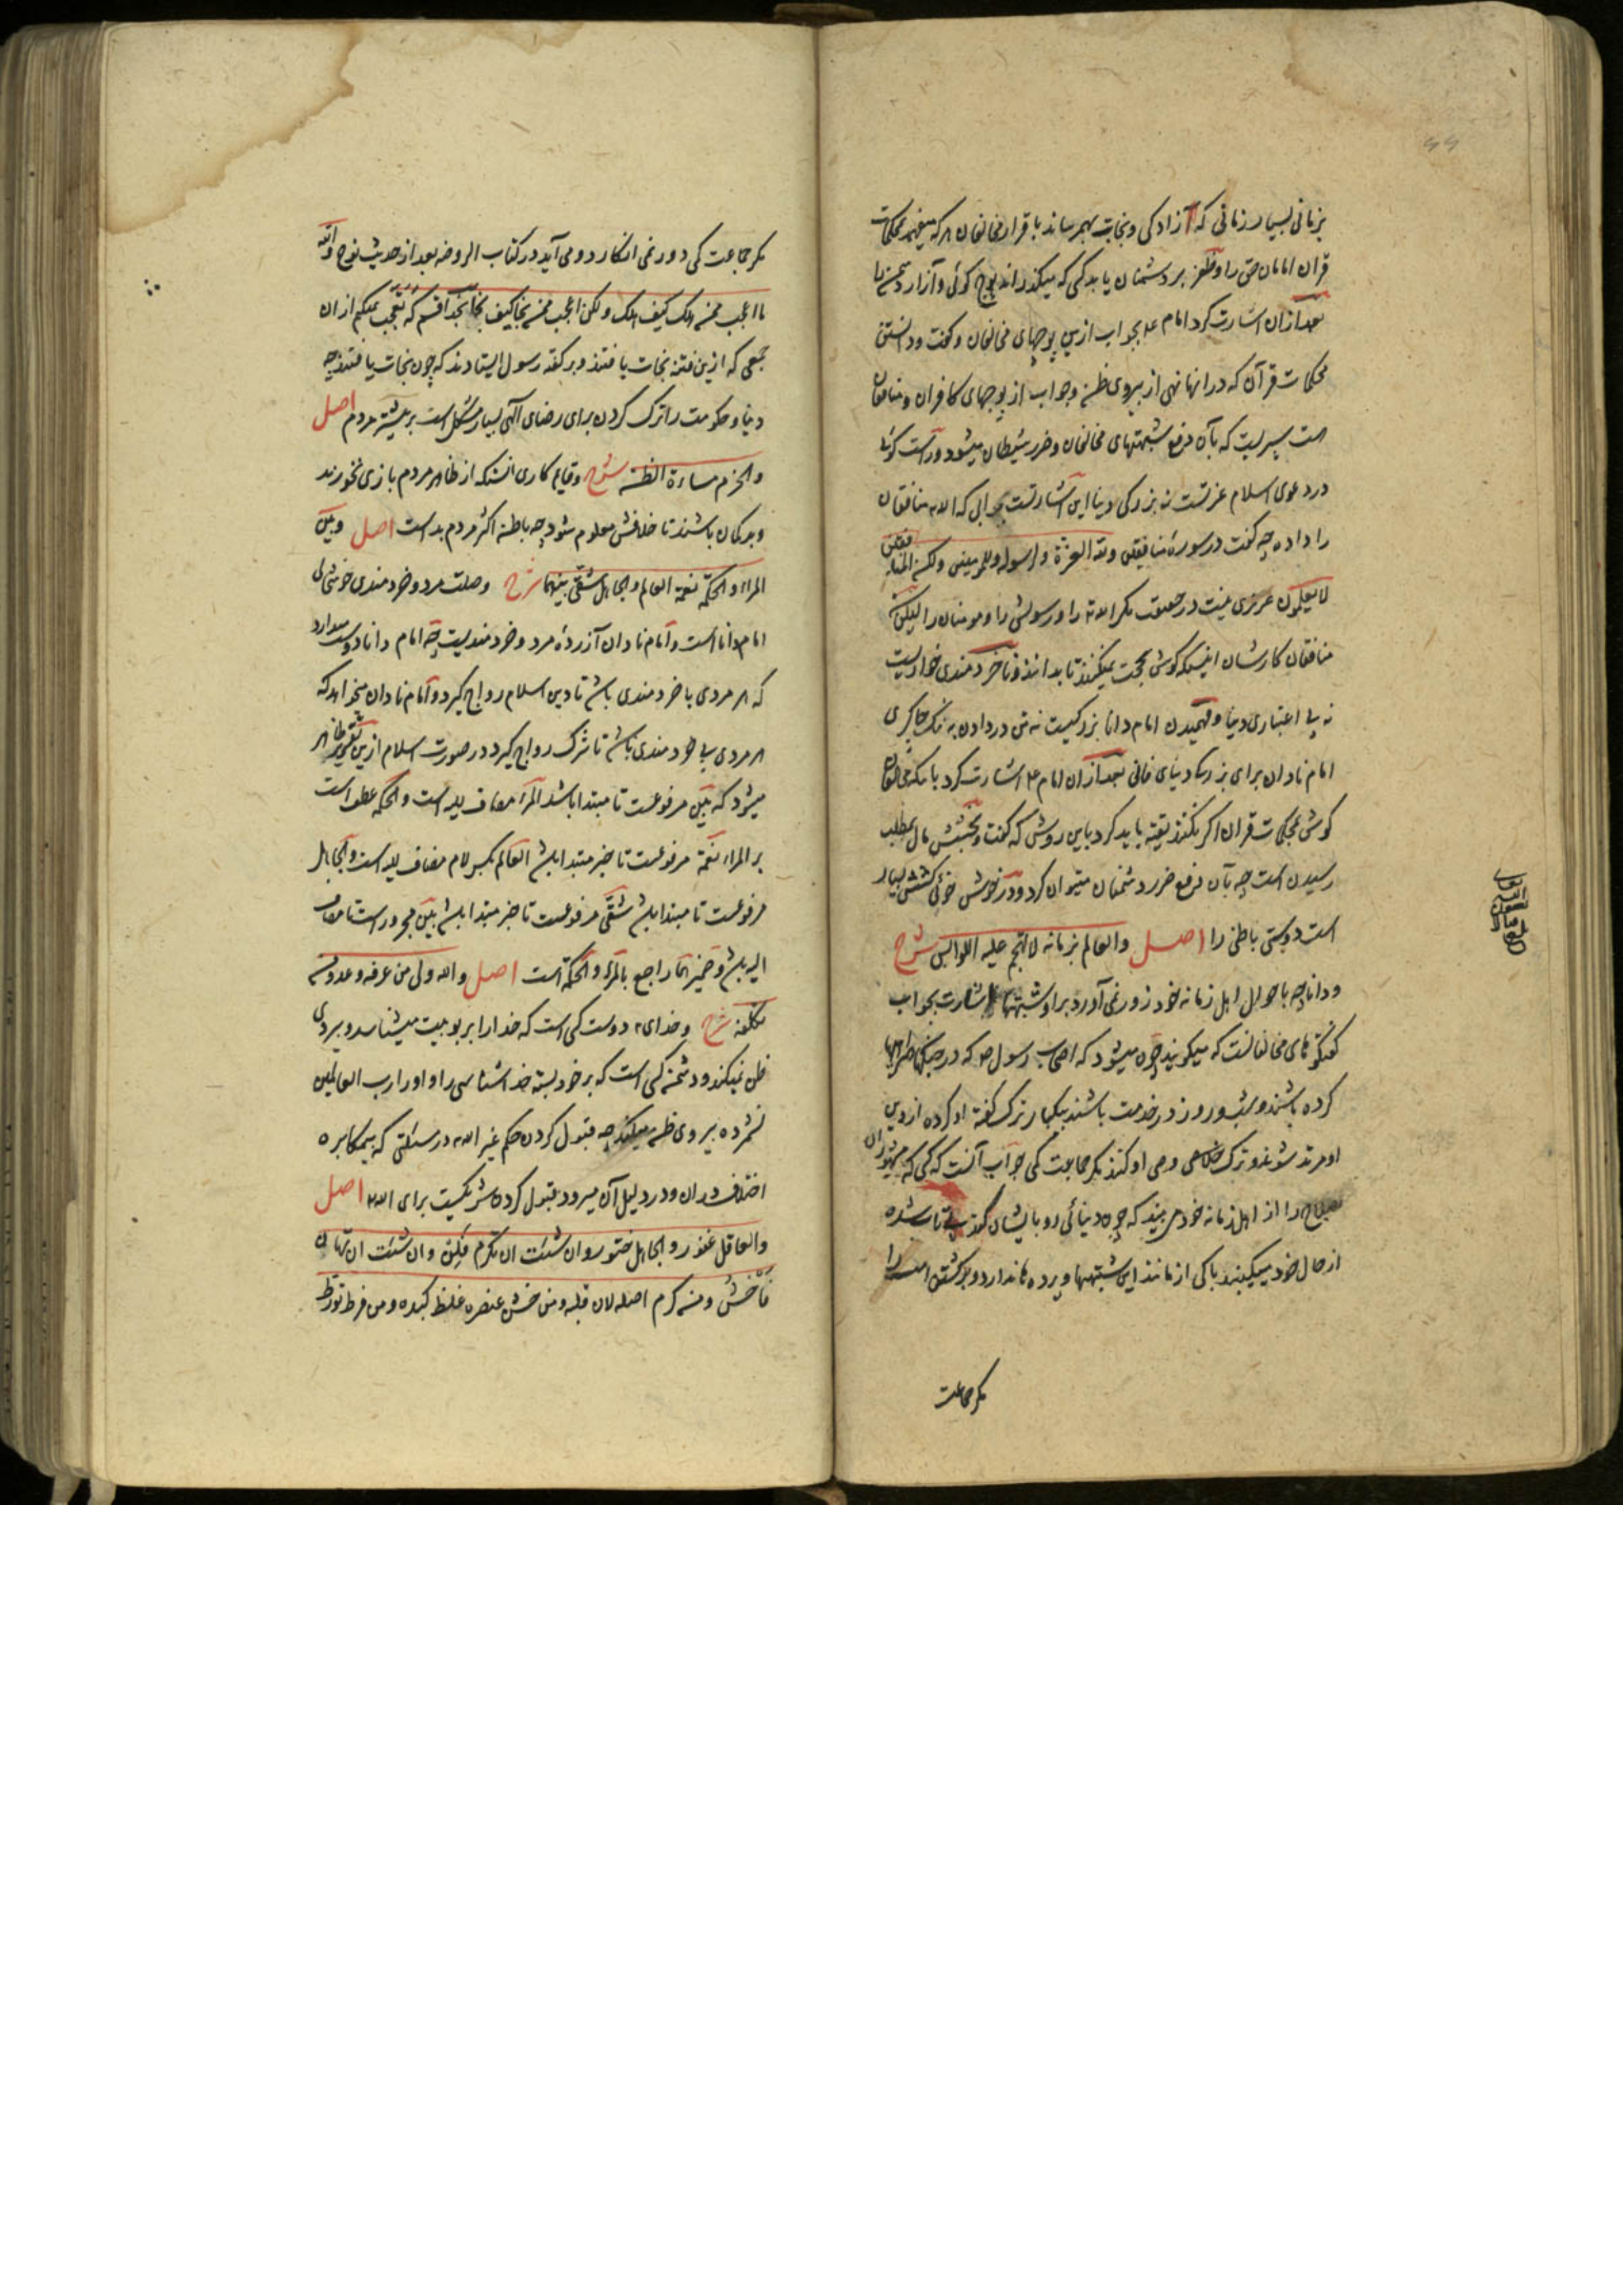 بزمانی بسیار زمانی که آزادگی و نجابت بهم رساند باقرار مخالفان هر که میفهمد محکمات
قران امامان حق را و ظفر بر دشمنان یابد کسی که میگذراند پوچ گوئی و آزار دشمن را
بعد ازان اشارت کرد امام ع بجواب ازین پوچهای مخالفان و گفت و دانستن
محکمات قرآن که در انها نهی از پیروی ظن و جواب از پوچهای کافران و منافقان
است سپریست که بآن دفع شبهتهای مخالفان و ضرر شیطان میشود و راست گوئی
در دعوی اسلام عزتست نه بزرگی دنیا این اشارتست بجوابی که الله منافقان
را داده چه گفت در سورهٔ منافقین ولله العزة ولرسوله وللمؤمنین ولکن المنافقین
لا یعلمون عزیزی نیست در حقیقت مگر الله را و رسولش را و مومنان را لیکن
منافقان کارشان اینست که گوش بحجت نمیکنند تا بدانند و ناخردمندی خواریست
نه بی اعتباری دنیا و فهمیدن امام دانا بزرگیست نه تن در دادن به ننگ چاکری
امام نادان برای بزرگی دنیای فانی بعد ازان امام ع اشارت کرد باینکه مخالفان
گوش بمحکمات قران اگر نکنند تقیه باید کرد باین روش که گفت و بخشش مال بمطلب
رسیدن است چه بآن دفع ضرر دشمنان میتوان کرد و در خوش خوئی کشش بسیار
است دوستی باطنی را اصل والعالم بزمانه لا تهجم علیه اللوابس شرح
و دانا چه باحوال اهل زمانه خود زور نمی آورد بر او شبهتها اشارت بجواب
گفتگوهای مخالفانست که میگویند چون میشود که اصحاب رسول ص که در جنگها همراهیها
کرده باشند و شب و روز در خدمت باشند یکبار ترک گفته او کرده از دین
او مرتد شوند و ترک وصی او کنند مگر جماعت کمی جواب آنست که کسی که مشهوران
صلاح را از اهل زمانه خود می بیند که چون دنیائی رو بایشان کند بی تاب شده
از حال خود میگردند باکی از مانند این شبهتها و پرده ها ندارد و برگشتن امت را
مگر جماعت
مگر جماعت کمی دور نمی انگارد و می آید در کتاب الروضه بعد از حدیث نوح والله
ما اعجب ممن هلک کیف هلک ولکن اعجب ممن نجا کیف نجا بخدا قسم که تعجب نمیکنم ازان
جمعی که ازین فتنه نجات یافتند و بر گفته رسول ایستادند که چون نجات یافتند چه
دنیا و حکومت را ترک کردن برای رضای الهی بسیار مشکل است بر بیشتر مردم اصل
والحزم مساءة الظن شرح و قایم کاری انست که از ظاهر مردم بازی نخورند
و بد گمان باشند تا خلافش معلوم شود چه باطن اکثر مردم بد است اصل وبین
المرء والحکمة نعمة العالم والجاهل شقی بینهما شرح وصلت مرد و خردمندی خوشحالی
امام دانا است و امام نادان آزرده مرد و خردمندیست چه امام دانا دوست میدارد
که هر مردی با خردمندی باشد تا دین اسلام رواج گیرد و امام نادان میخواهد که
هر مردی بی خردمندی باشد تا شرک رواج گیرد در صورت اسلام ازین تقریر ظاهر
میشود که بین مرفوعست تا مبتدا باشد المرء مضاف الیه است والحکمة عطف است
بر المرء نعمة مرفوعست تا خبر مبتدا باشد العالم بکسر لام مضاف الیه است والجاهل
مرفوعست تا مبتدا باشد شقی مرفوعست تا خبر مبتدا باشد بین مجرور است تا مضاف
الیه باشد و ضمیر هما راجع بالمرء والحکمة است اصل والله ولی من عرفه وعدو من
تکلفه شرح و خدای دوست کسی است که خدا را بربوبیت میشناسد و پیروی
ظن نمیکند و دشمن کسی است که بر خود بسته خداشناسی را و او را رب العالمین
نشمرده پیروی ظن میکند چه قبول کردن حکم غیر الله در مسئلتی که بی مکابره
اختلاف دران و در دلیل آن میرود قبول کردن شریکیست برای الله اصل
والعاقل غفور والجاهل ختور وان شئت ان تکرم فلن وان شئت ان تهان
فاخشن ومن کرم اصله لان قلبه ومن خشن عنصره غلظ کبده ومن فرط تورط